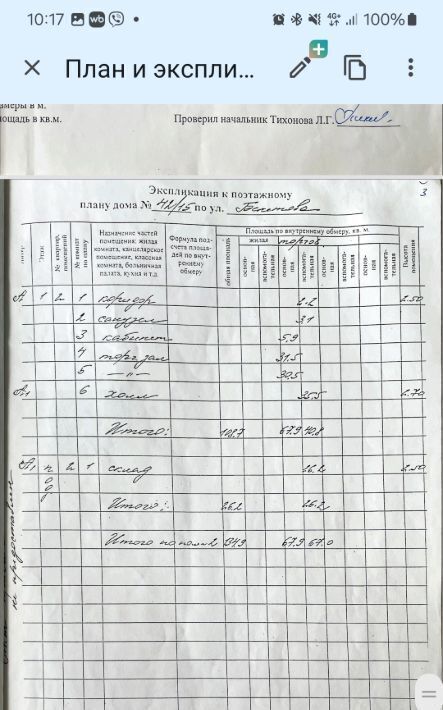 10:17 wb 4G+ 100%
План и экспли...
амеры в м.
ощадь в кв.м.
Проверил начальник Тихонова Л.Г.
3
Экспликация к поэтажному
плану дома № 42/15 по ул.
Этаж
№ комнат по плану
Назначение частей помещения: жилая комната, канцелярское помещение, классная комната, больничная палата, кухня и т.д.
Формула подсчета площадей по внутреннему обмеру
Площадь по внутреннему обмеру, кв. м.
общая площадь
жилая торгов.
основная вспомогательная основная вспомогательная основная вспомогательная основная вспомогательная
Высота помещения
А 1 2 1 коридор 2.2 2.50
2 санузел 3.1
3 кабинет 5.9
4 торг зал 31.5
5 —〃— 30.5
А1 6 холл 35.5 2.70
Итого: 108.7 67.9 40.8
А1 2 1 склад 26.2 2.50
Итого: 26.2 26.2
Итого по пом. 2 134.9 67.9 67.0